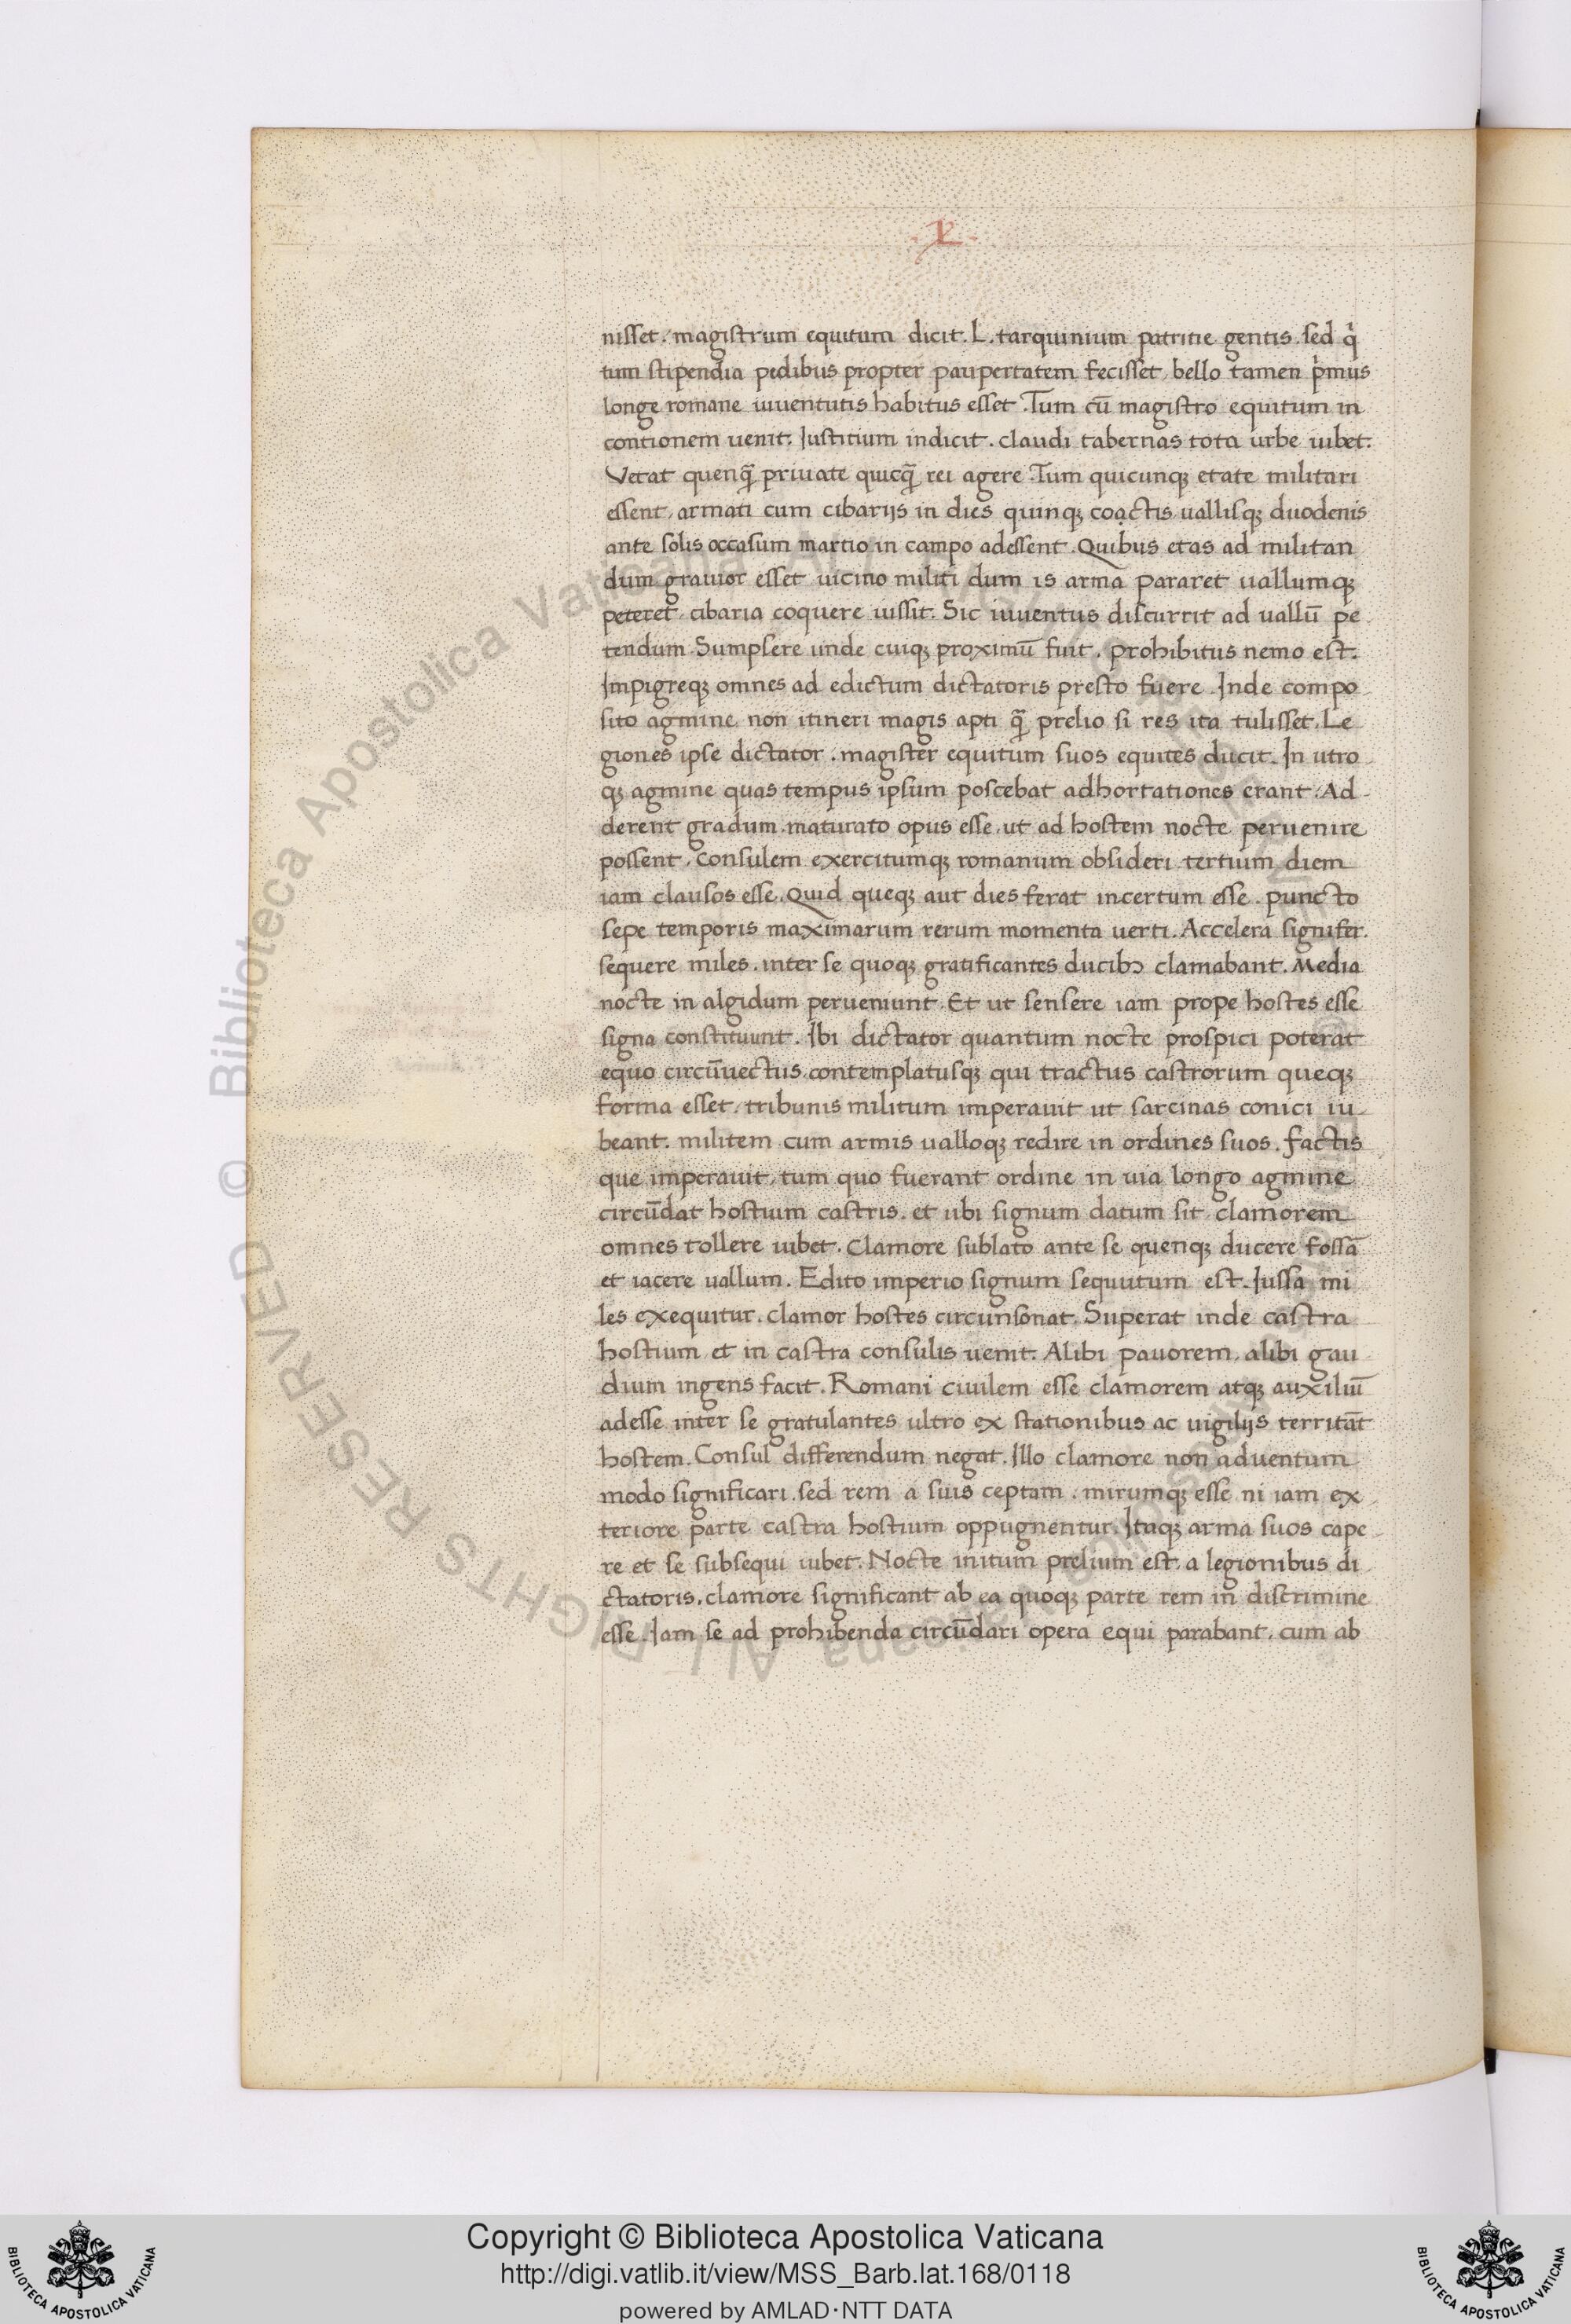 .X.
nisset. magistrum equitum dicit. L. tarquinium patritie gentis. sed q̇
tum stipendia pedibus propter paupertatem fecisset, bello tamen pͥmus
longe romane iuuentutis habitus esset. Tum cū magistro equitum in
contionem uenit. Iustitium indicit. claudi tabernas tota urbe iubet.
Vetat quenq̄ priuate quicq̄ rei agere. Tum quicunqꝫ etate militari
essent, armati cum cibarijs in dies quinqꝫ coactis uallisqꝫ duodenis
ante solis occasum martio in campo adessent. Quibus etas ad militan
dum grauior esset uicino militi dum is arma pararet uallumqꝫ
peteret, cibaria coquere iussit. Sic iuuentus discurrit ad uallū pe
tendum. Sumpsere unde cuiqꝫ proximū fuit. prohibitus nemo est.
Impigreqꝫ omnes ad edictum dictatoris presto fuere. Inde compo
sito agmine non itineri magis apti q̄ prelio si res ita tulisset. Le
giones ipse dictator. magister equitum suos equites ducit. In utro
qꝫ agmine quas tempus ipsum poscebat adhortationes erant. Ad
derent gradum. maturato opus esse, ut ad hostem nocte peruenire
possent. Consulem exercitumqꝫ romanum obsideri tertium diem
iam clausos esse. Quid queqꝫ aut dies ferat incertum esse. puncto
sepe temporis maximarum rerum momenta uerti. Accelera signifer.
sequere miles. inter se quoqꝫ gratificantes ducibꝫ clamabant. Media
nocte in algidum perueniunt. Et ut sensere iam prope hostes esse
signa constituunt. Ibi dictator quantum nocte prospici poterat
equo circūuectus, contemplatusqꝫ qui tractus castrorum queqꝫ
forma esset, tribunis militum imperauit ut sarcinas conici iu
beant. militem cum armis ualloqꝫ redire in ordines suos. factis
que imperauit, tum quo fuerant ordine in uia longo agmine
circūdat hostium castris. et ubi signum datum sit clamorem
omnes tollere iubet. Clamore sublato ante se quenqꝫ ducere fossā
et iacere uallum. Edito imperio signum sequutum est. Iussa mi
les exequitur. clamor hostes circunsonat. Superat inde castra
hostium et in castra consulis uenit. Alibi pauorem, alibi gau
dium ingens facit. Romani ciuilem esse clamorem atqꝫ auxiliū
adesse inter se gratulantes ultro ex stationibus ac uigilijs territāt
hostem. Consul differendum negat. Illo clamore non aduentum
modo significari. sed rem a suis ceptam. mirumqꝫ esse ni iam ex
teriore parte castra hostium oppugnentur. Itaqꝫ arma suos cape
re et se subsequi iubet. Nocte initum prelium est. a legionibus di
ctatoris. clamore significant ab ea quoqꝫ parte rem in discrimine
esse. Iam se ad prohibenda circūdari opera equi parabant. cum ab
© Biblioteca Apostolica Vaticana
ALL RIGHTS RESERVED
Copyright © Biblioteca Apostolica Vaticana
http://digi.vatlib.it/view/MSS_Barb.lat.168/0118
powered by AMLAD·NTT DATA
BIBLIOTECA APOSTOLICA VATICANA
BIBLIOTECA APOSTOLICA VATICANA